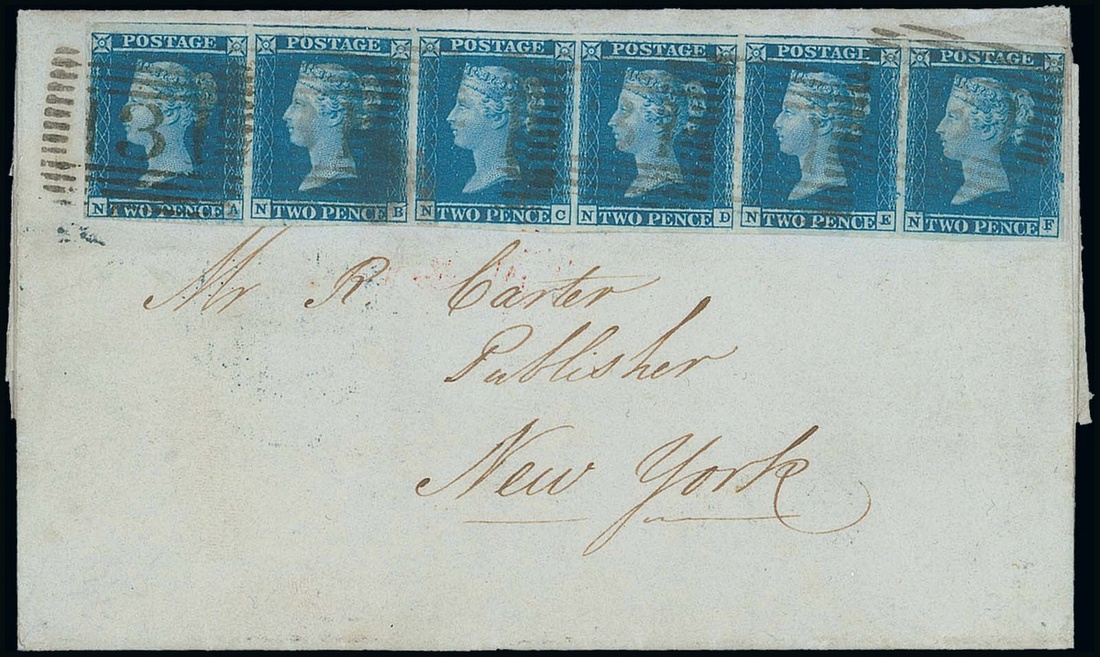 POSTAGE POSTAGE POSTAGE POSTAGE POSTAGE POSTAGE
137
N TWO PENCE A N TWO PENCE B N TWO PENCE C N TWO PENCE D N TWO PENCE E N TWO PENCE F
Mr R Carter
Publisher
New York